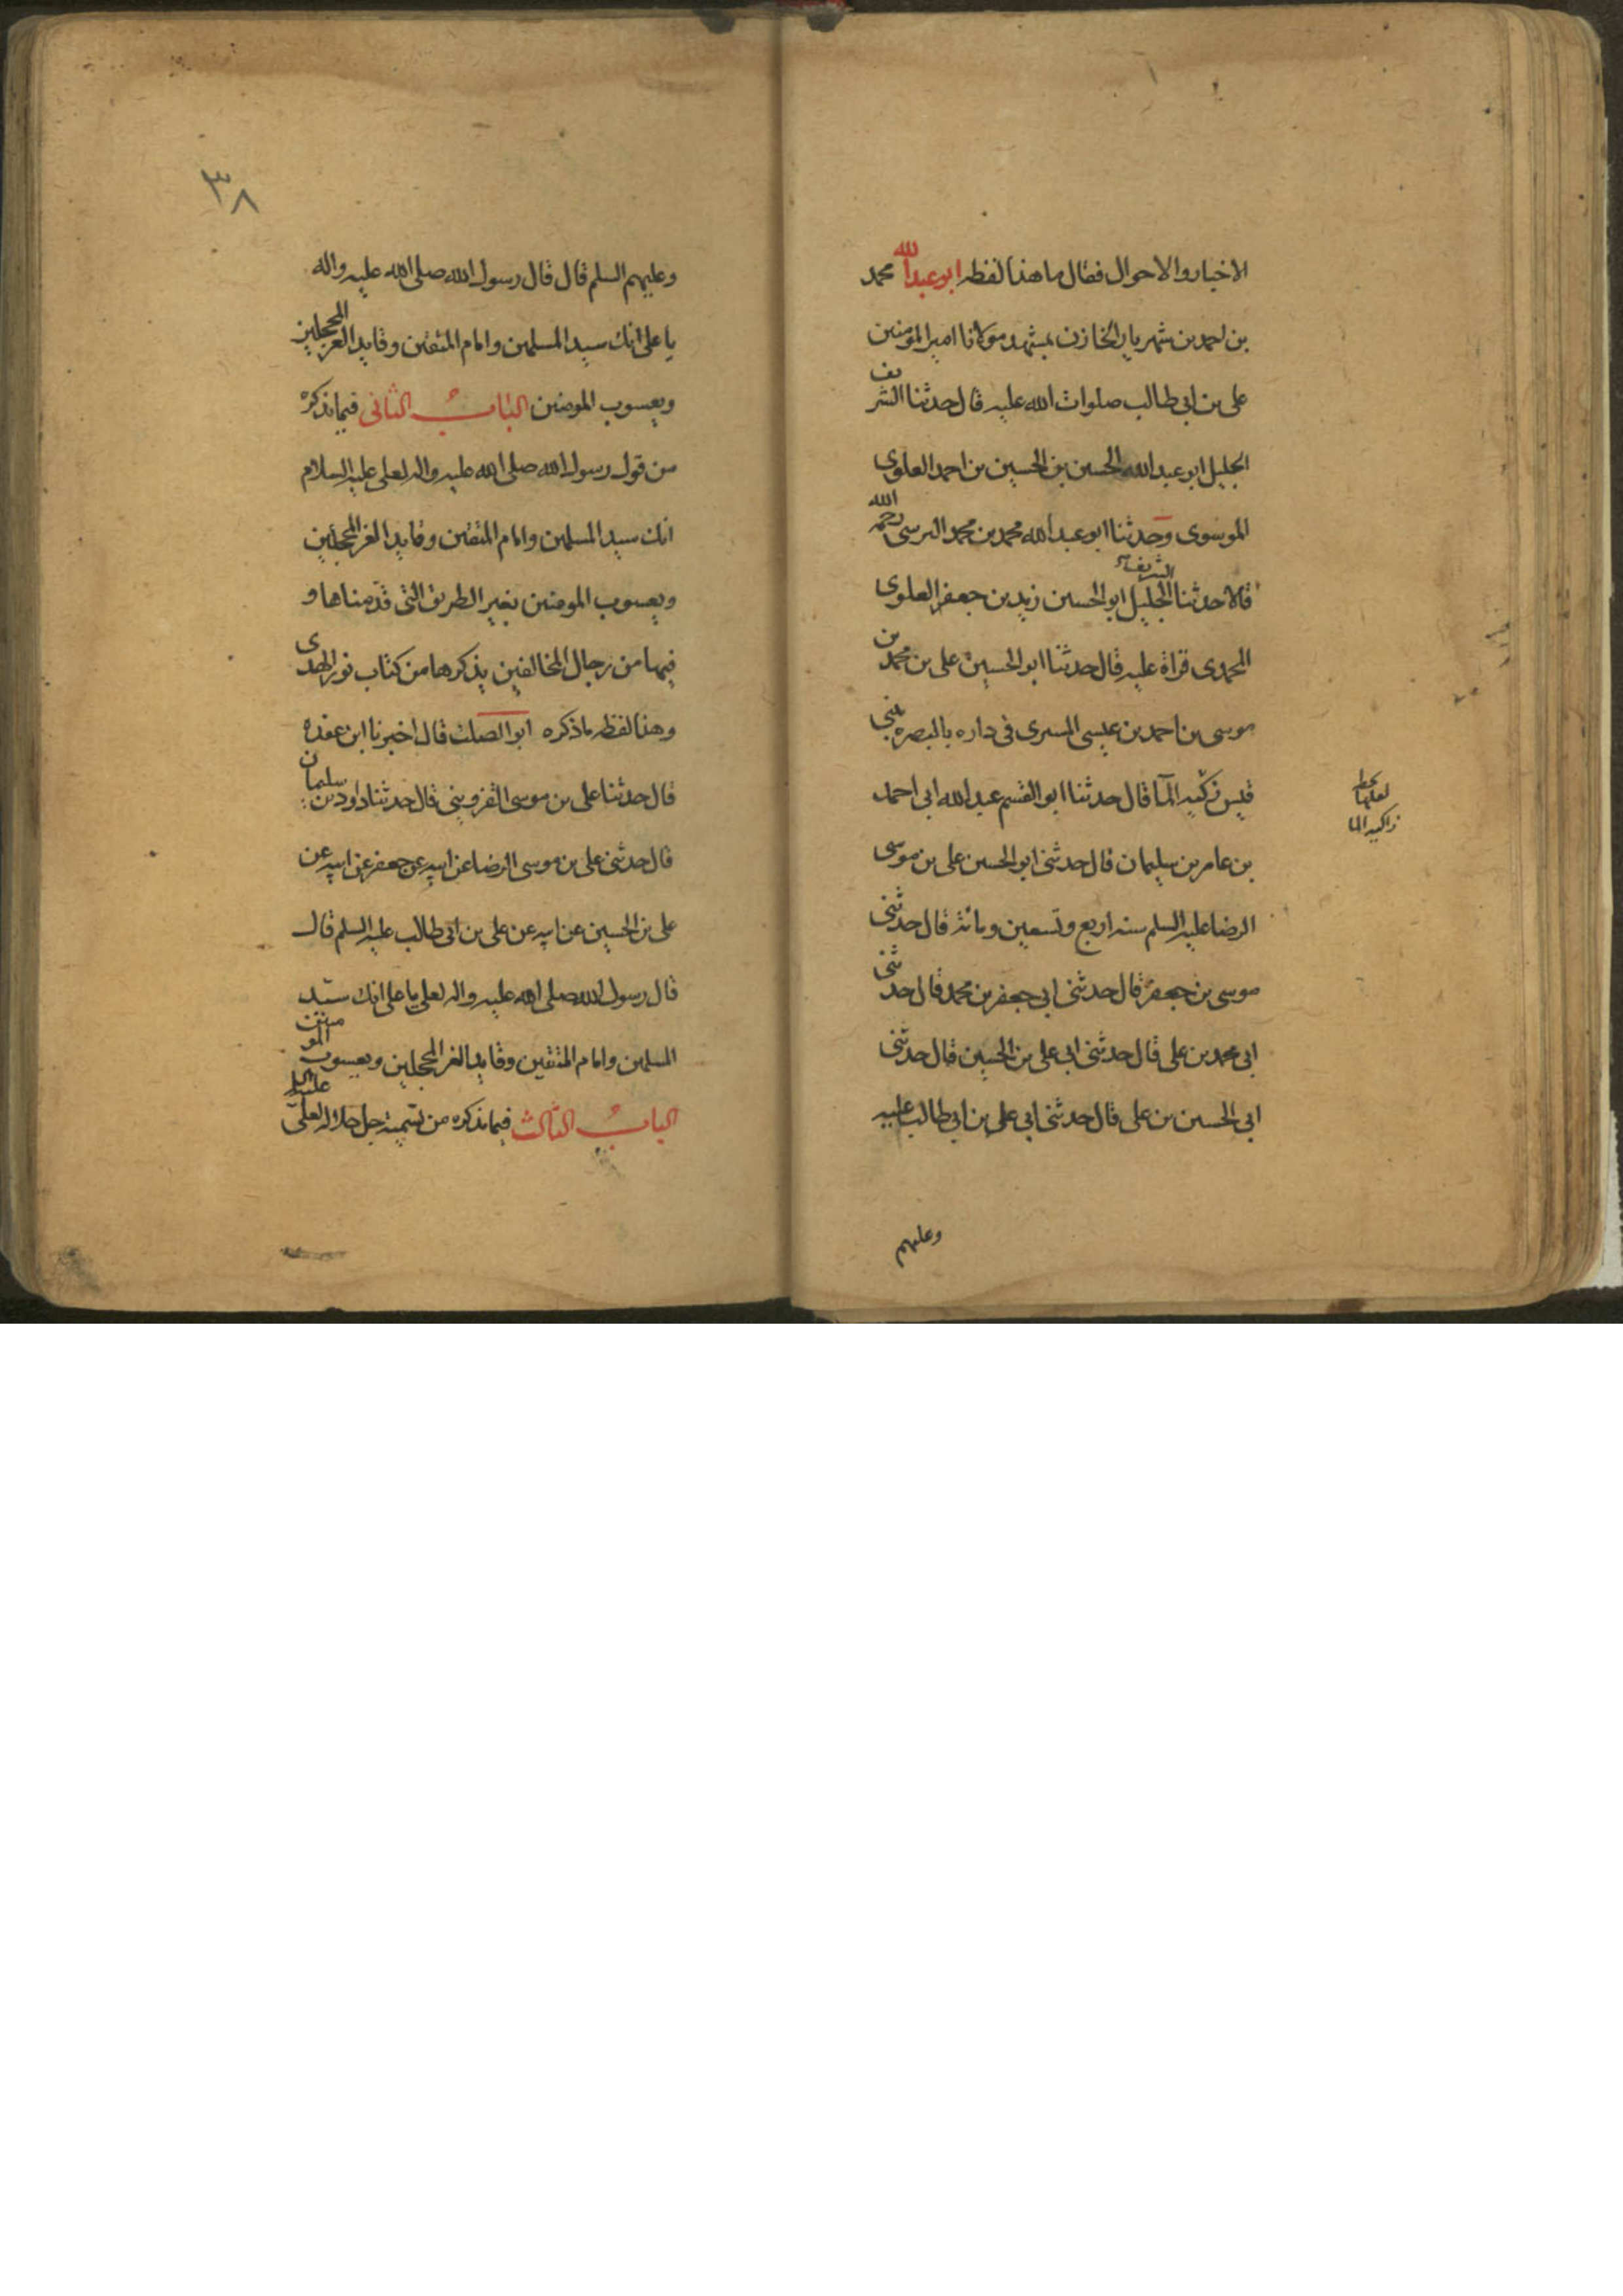 الاخبار والاحوال فقال ما هذا لفظه ابو عبد الله محمد
بن احمد بن شهريار الخازن بمشهد مولانا امير المومنين
على بن ابى طالب صلوات الله عليه قال حدثنا الشريف
الجليل ابو عبد الله الحسين بن الحسين بن احمد العلوى
الموسوى وحدثنا ابو عبد الله محمد بن محمد البرسى رحمه الله
قالا حدثنا الشريف الجليل ابو الحسين زيد بن جعفر العلوى
المحمدى قراة عليه قال حدثنا ابو الحسين على بن محمد بن
موسى بن احمد بن عيسى المسرى فى داره بالبصره بنى
قيس زكية الما قال حدثنا ابو القسم عبد الله ابى احمد
بن عامر بن سليمان قال حدثنى ابو الحسين على بن موسى
الرضا عليه السلم سنه اربع وتسعين ومائة قال حدثنى
موسى بن جعفر قال حدثنى ابى جعفر بن محمد قال حدثنى
ابى محمد بن على قال حدثنى ابى على بن الحسين قال حدثنى
ابى الحسين بن على قال حدثنى ابى على بن ابى طالب عليه
وعليهم
لعلها بخط
زاكيه الما
٣٨
وعليهم السلم قال قال رسول الله صلى الله عليه واله
يا على انك سيد المسلمين وامام المتقين وقايد الغر المحجلين
ويعسوب المومنين الباب الثانى فيما نذكره
من قول رسول الله صلى الله عليه واله لعلى عليه السلام
انك سيد المسلمين وامام المتقين وقايد الغر المحجلين
ويعسوب المومنين بغير الطريق التى قدمناها و
فيها من رجال المخالفين يذكرها من كتاب نور الهدى
وهذا لفظه ما ذكره ابو الصلت قال اخبرنا ابن عقده
قال حدثنا على بن موسى القزوينى قال حدثنا داود بن سليمان
قال حدثنى على بن موسى الرضا عن ابيه عن جعفر عن ابيه عن
على بن الحسين عن ابيه عن على بن ابى طالب عليه السلم قال
قال رسول الله صلى الله عليه واله لعلى يا على انك سيد
المسلمين وامام المتقين وقايد الغر المحجلين ويعسوب المومنين
الباب الثالث فيما نذكره من تسمية جل جلاله لعلى عليه السلم